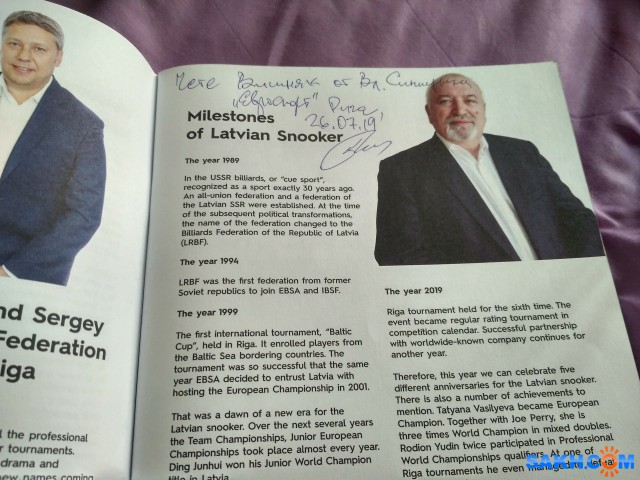 Чете от Вл. Синицына
"Евроспорт" Рига
26.07.19
Milestones
of Latvian Snooker
The year 1989
In the USSR billiards, or "cue sport",
recognized as a sport exactly 30 years ago.
An all-union federation and a federation of
the Latvian SSR were established. At the time
of the subsequent political transformations,
the name of the federation changed to the
Billiards Federation of the Republic of Latvia
(LRBF).
The year 1994
LRBF was the first federation from former
Soviet republics to join EBSA and IBSF.
The year 1999
The first international tournament, "Baltic
Cup", held in Riga. It enrolled players from
the Baltic Sea bordering countries. The
tournament was so successful that the same
year EBSA decided to entrust Latvia with
hosting the European Championship in 2001.
That was a dawn of a new era for the
Latvian snooker. Over the next several years
the Team Championships, Junior European
Championships took place almost every year.
Ding Junhui won his Junior World Champion
title in Latvia
The year 2019
Riga tournament held for the sixth time. The
event became regular rating tournament in
competition calendar. Successful partnership
with worldwide-known company continues for
another year.
Therefore, this year we can celebrate five
different anniversaries for the Latvian snooker.
There is also a number of achievements to
mention. Tatyana Vasilyeva became European
Champion. Together with Joe Perry, she is
three times World Champion in mixed doubles.
Rodion Yudin twice participated in Professional
World Championships qualifiers. At one of
Riga tournaments he even managed to defeat
nd Sergey
Federation
iga
l the professional
r tournaments.
drama and
new names coming
SAKH.COM